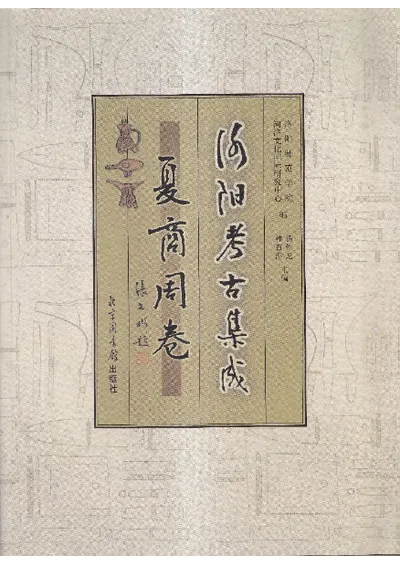 洛阳师范学院
河洛文化国际研究中心
编
主编
洛阳考古集成
夏商周卷
张文彬题
北京图书馆出版社